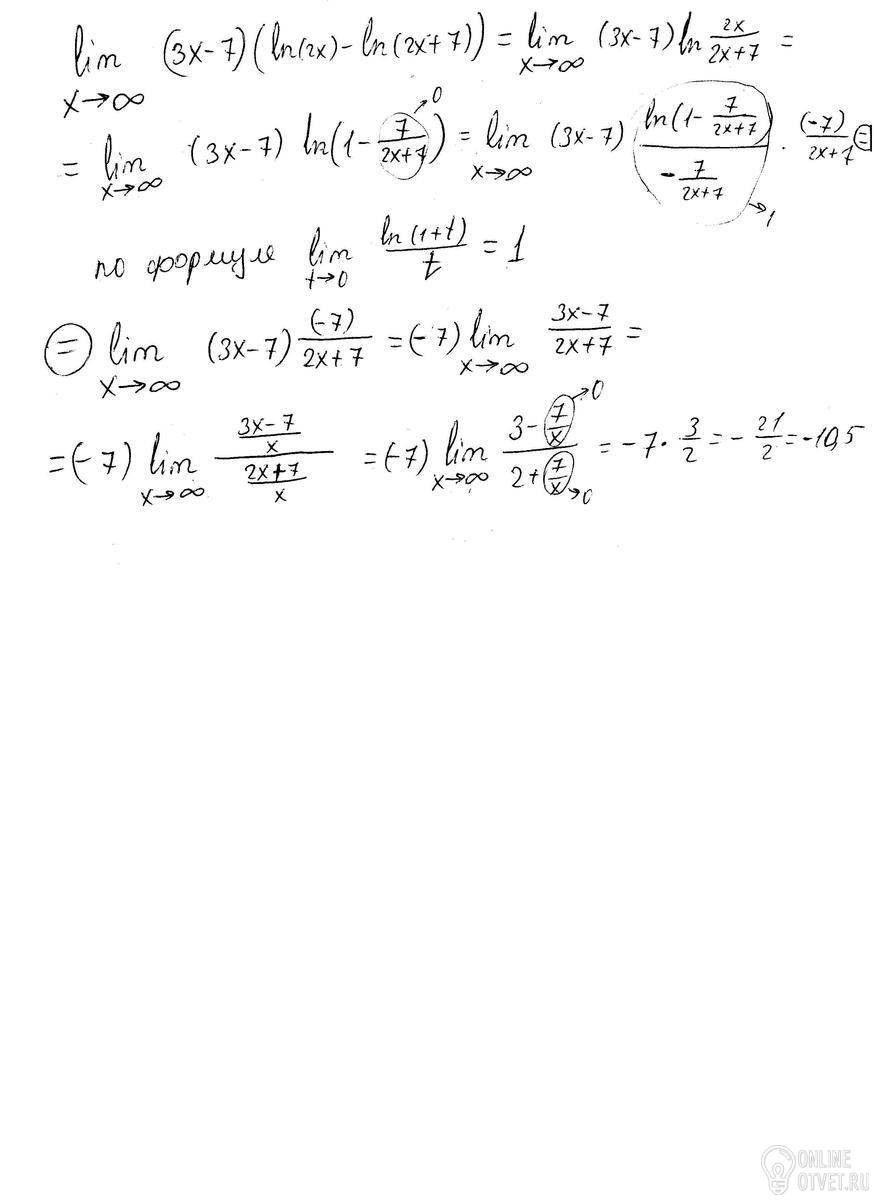 lim (3x-7)(ln(2x)-ln(2x+7)) = lim (3x-7) ln 2x/(2x+7) =
x→∞ x→∞
= lim (3x-7) ln(1 - 7/(2x+7)) →0 = lim (3x-7) ln(1 - 7/(2x+7)) / (-7/(2x+7)) →1 · (-7)/(2x+7) =
x→∞ x→∞
по формуле lim ln(1+t)/t = 1
t→0
= lim (3x-7) (-7)/(2x+7) = (-7) lim (3x-7)/(2x+7) =
x→∞ x→∞
= (-7) lim ((3x-7)/x)/((2x+7)/x) = (-7) lim (3 - 7/x →0)/(2 + 7/x →0) = -7 · 3/2 = - 21/2 = -10,5
x→∞ x→∞
ONLINE
OTVET.RU